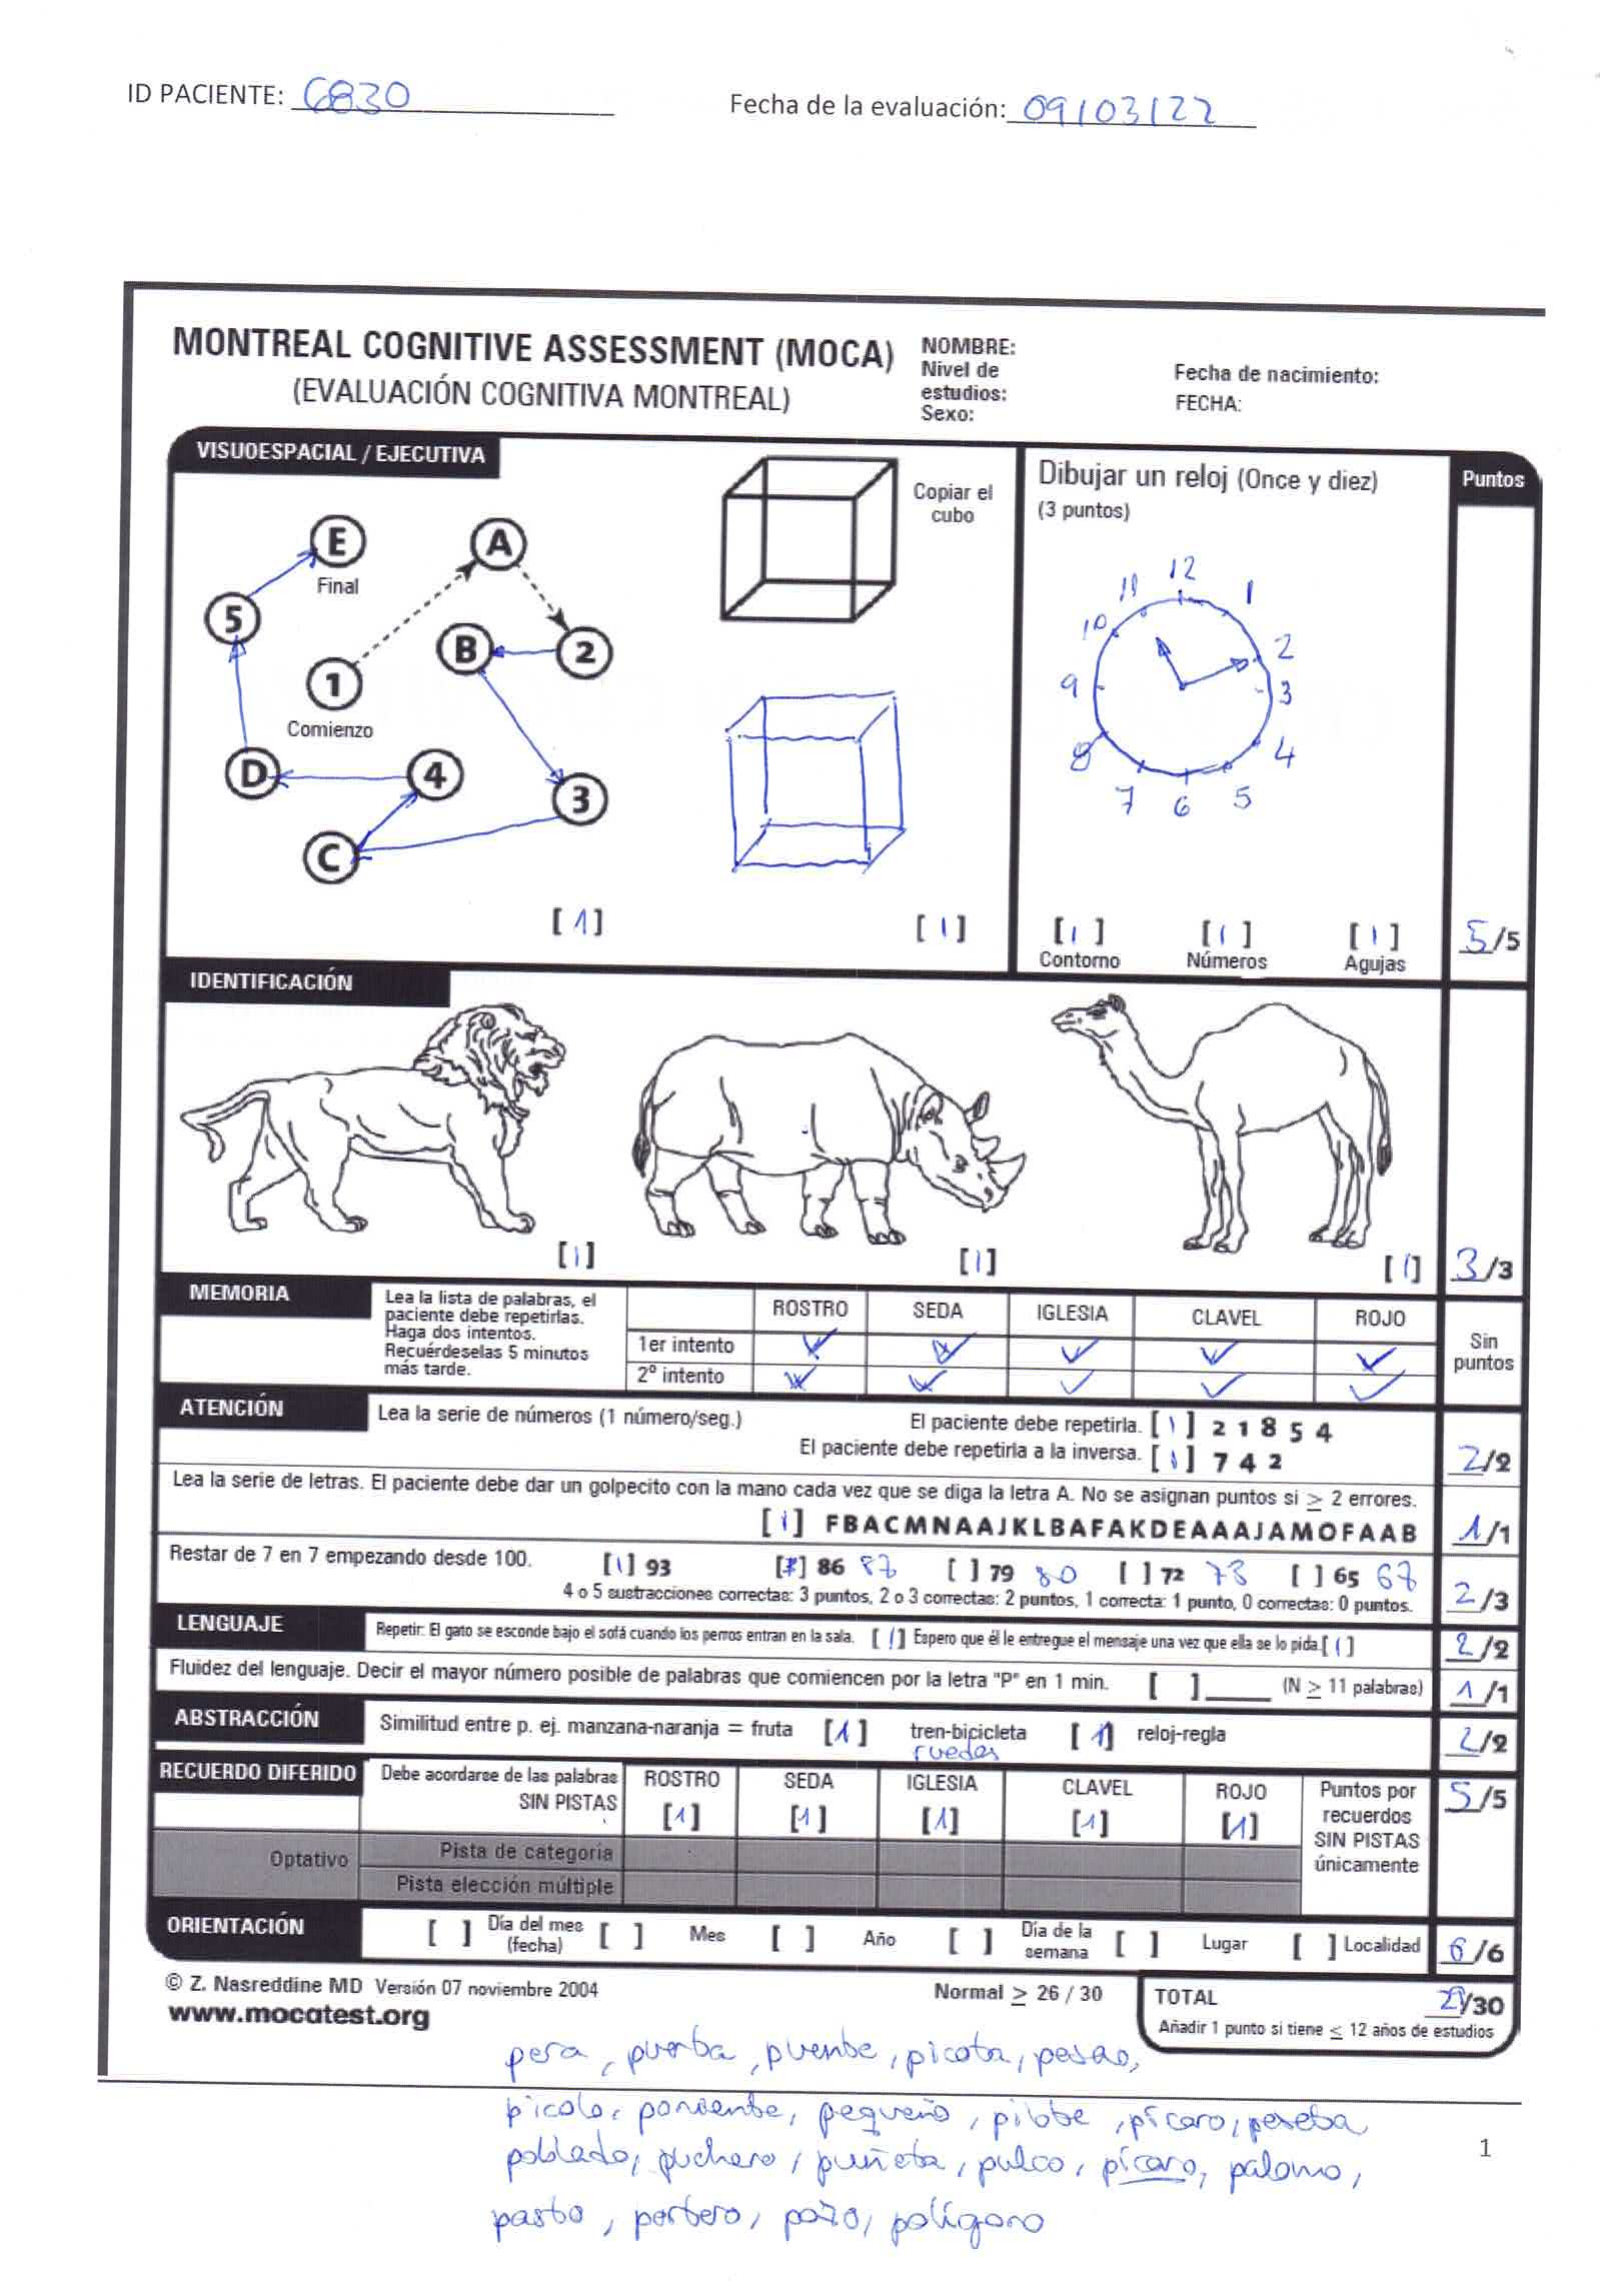 ID PACIENTE: 6830
Fecha de la evaluación: 09/03/22
MONTREAL COGNITIVE ASSESSMENT (MOCA)
(EVALUACIÓN COGNITIVA MONTREAL)
NOMBRE:
Nivel de
estudios:
Sexo:
Fecha de nacimiento:
FECHA:
VISUOESPACIAL / EJECUTIVA
Puntos
E
Final
A
5
B
2
1
Comienzo
D
4
3
C
[1]
Copiar el
cubo
[1]
Dibujar un reloj (Once y diez)
(3 puntos)
12
11
1
10
2
9
3
8
4
7
6
5
[1] [1] [1]
Contorno Números Agujas
5/5
IDENTIFICACIÓN
[1] [1] [1] 3/3
MEMORIA
Lea la lista de palabras, el
paciente debe repetirlas.
Haga dos intentos.
Recuérdeselas 5 minutos
más tarde.
ROSTRO SEDA IGLESIA CLAVEL ROJO
1er intento ✓ ✓ ✓ ✓ ✓
2º intento ✓ ✓ ✓ ✓ ✓
Sin
puntos
ATENCIÓN
Lea la serie de números (1 número/seg.) El paciente debe repetirla. [1] 2 1 8 5 4
El paciente debe repetirla a la inversa. [1] 7 4 2 2/2
Lea la serie de letras. El paciente debe dar un golpecito con la mano cada vez que se diga la letra A. No se asignan puntos si ≥ 2 errores.
[1] FBACMNAAJKLBAFAKDEAAAJAMOFAAB 1/1
Restar de 7 en 7 empezando desde 100. [1] 93 [ ] 86 87 [ ] 79 80 [ ] 72 73 [ ] 65 67
4 o 5 sustracciones correctas: 3 puntos, 2 o 3 correctas: 2 puntos, 1 correcta: 1 punto, 0 correctas: 0 puntos. 2/3
LENGUAJE
Repetir: El gato se esconde bajo el sofá cuando los perros entran en la sala. [1] Espero que él le entregue el mensaje una vez que ella se lo pida. [1] 2/2
Fluidez del lenguaje. Decir el mayor número posible de palabras que comiencen por la letra "P" en 1 min. [ ] ____ (N ≥ 11 palabras) 1/1
ABSTRACCIÓN
Similitud entre p. ej. manzana-naranja = fruta [1] tren-bicicleta [1] reloj-regla 2/2
ruedas
RECUERDO DIFERIDO
Debe acordarse de las palabras
SIN PISTAS
ROSTRO SEDA IGLESIA CLAVEL ROJO
[1] [1] [1] [1] [1]
Puntos por
recuerdos
SIN PISTAS
únicamente
5/5
Optativo
Pista de categoria
Pista elección múltiple
ORIENTACIÓN
[ ] Día del mes (fecha) [ ] Mes [ ] Año [ ] Día de la semana [ ] Lugar [ ] Localidad 6/6
© Z. Nasreddine MD Versión 07 noviembre 2004
www.mocatest.org
Normal ≥ 26 / 30
TOTAL 29/30
Añadir 1 punto si tiene ≤ 12 años de estudios
pera, puerta, puente, picota,
picolo, poniente, pequeño, pícaro, peseta
poblado, puchero, puñeta, pulco, pícaro, palomo,
pasto, portero, pozo, polígono
1